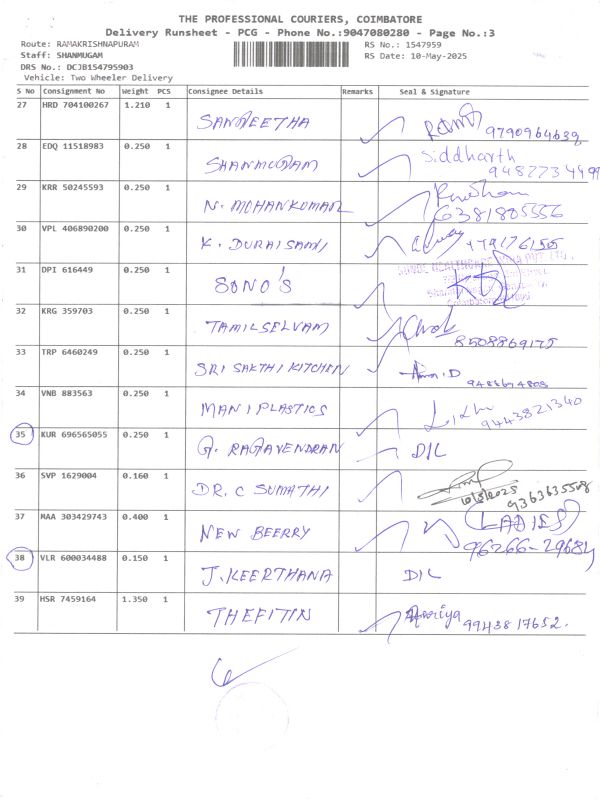 THE PROFESSIONAL COURIERS, COIMBATORE
Delivery Runsheet - PCG - Phone No.:9047080280 - Page No.:3
Route: RAMAKRISHNAPURAM
RS No.: 1547959
Staff: SHANMUGAM
RS Date: 10-May-2025
DRS No.: DCJB154795903
Vehicle: Two Wheeler Delivery
S No Consignment No Weight PCS Consignee Details Remarks Seal & Signature
27 HRD 704100267 1.210 1 SANGEETHA 9790964639
28 EDQ 11518983 0.250 1 SHANMUGAM Siddharth
29 KRR 50245593 0.250 1 N. MOHANKUMAR 6381805556
30 VPL 406890200 0.250 1 K. DURAISAMI
31 DPI 616449 0.250 1 SONO'S
32 KRG 359703 0.250 1 TAMILSELVAM 8508869175
33 TRP 6460249 0.250 1 SRI SAKTHI KITCHEN
34 VNB 883563 0.250 1 MANI PLASTICS 9443821340
35 KUR 696565055 0.250 1 G. RAGAVENDRAN D/L
36 SVP 1629004 0.160 1 DR. C SUMATHI 10/5/2025 9363635508
37 MAA 303429743 0.400 1 NEW BEERRY LADIES 96266-29684
38 VLR 600034488 0.150 1 J. KEERTHANA D/L
39 HSR 7459164 1.350 1 THEFITIN 9943817652.